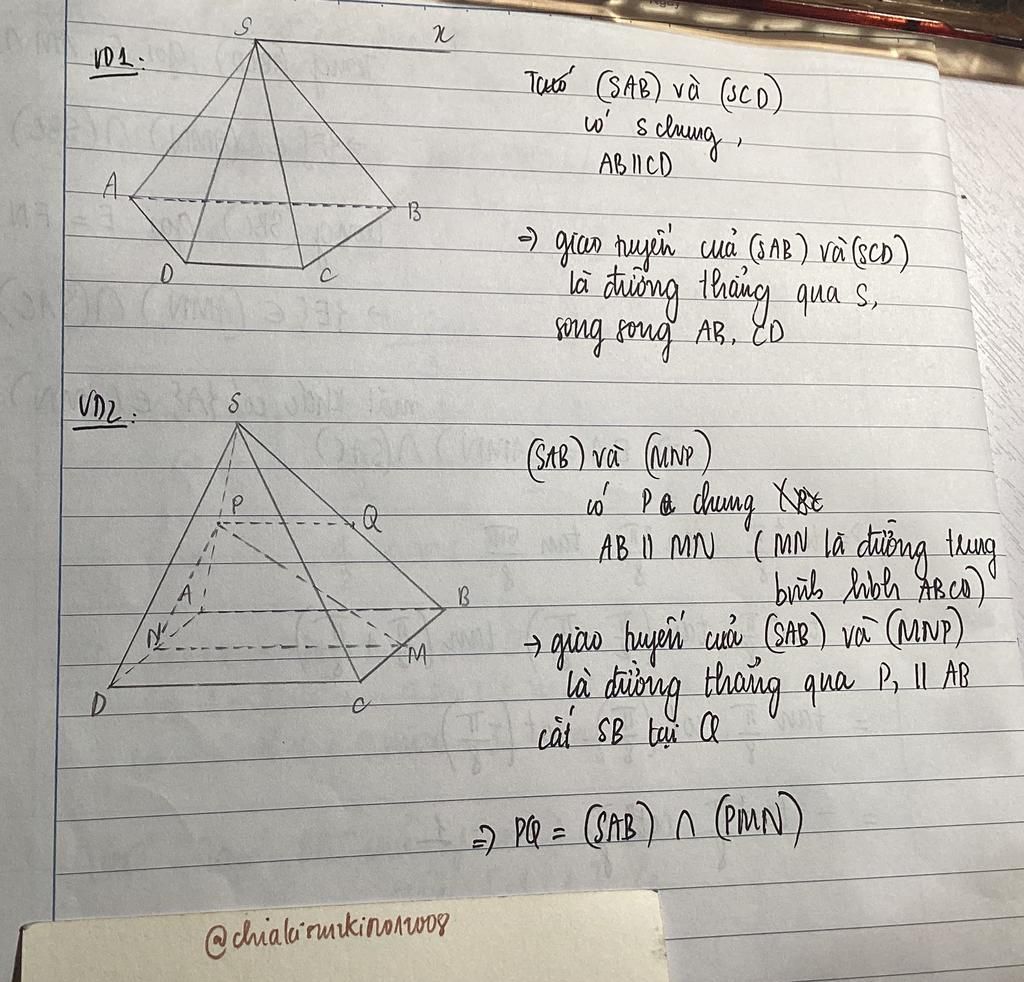 VD1:
S
x
A
B
D
C
Ta có (SAB) và (SCD)
có S chung,
AB ∥ CD
⇒ giao tuyến của (SAB) và (SCD)
là đường thẳng qua S,
song song AB, CD
VD2:
S
P
Q
A
B
N
M
D
C
(SAB) và (MNP)
có P chung
AB ∥ MN (MN là đường trung
bình hbh ABCD)
→ giao tuyến của (SAB) và (MNP)
là đường thẳng qua P, ∥ AB
cắt SB tại Q
⇒ PQ = (SAB) ∩ (PMN)